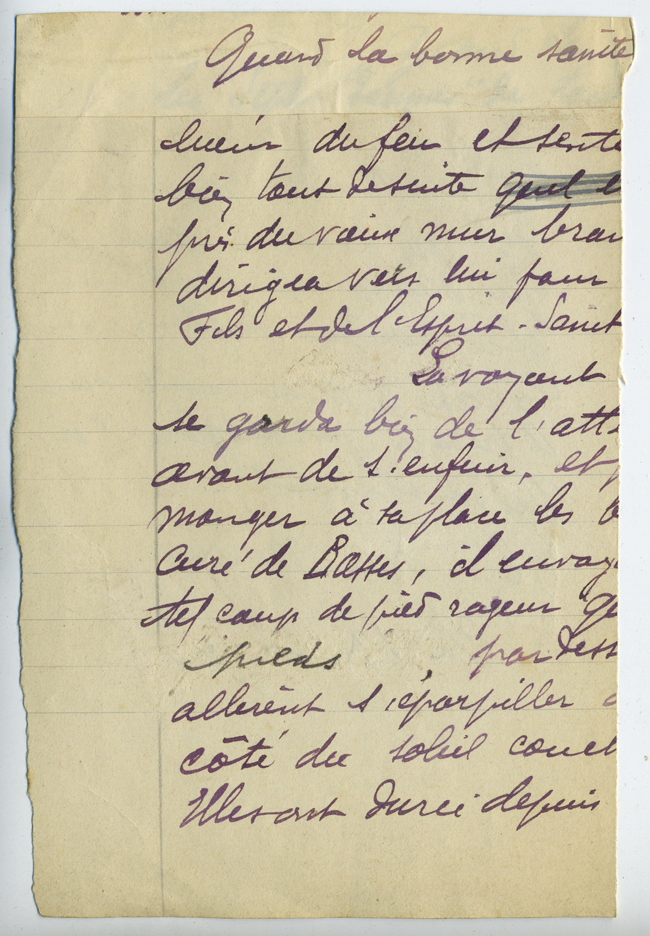 Quand la bonne sainte
lueur du feu et sente
bien tout de suite quel e
près du vieux mur bran
dirigea vers lui pour
Fils et de l'Esprit-Saint
La voyant
se garda bien de l'att
avant de s'enfuir, et p
manger à sa place les b
Curé de Basses, il envoya
tel coup de pied rageur qu
pieds , par dess
allèrent s'éparpiller
côté du soleil couch
Elles ont durci depuis